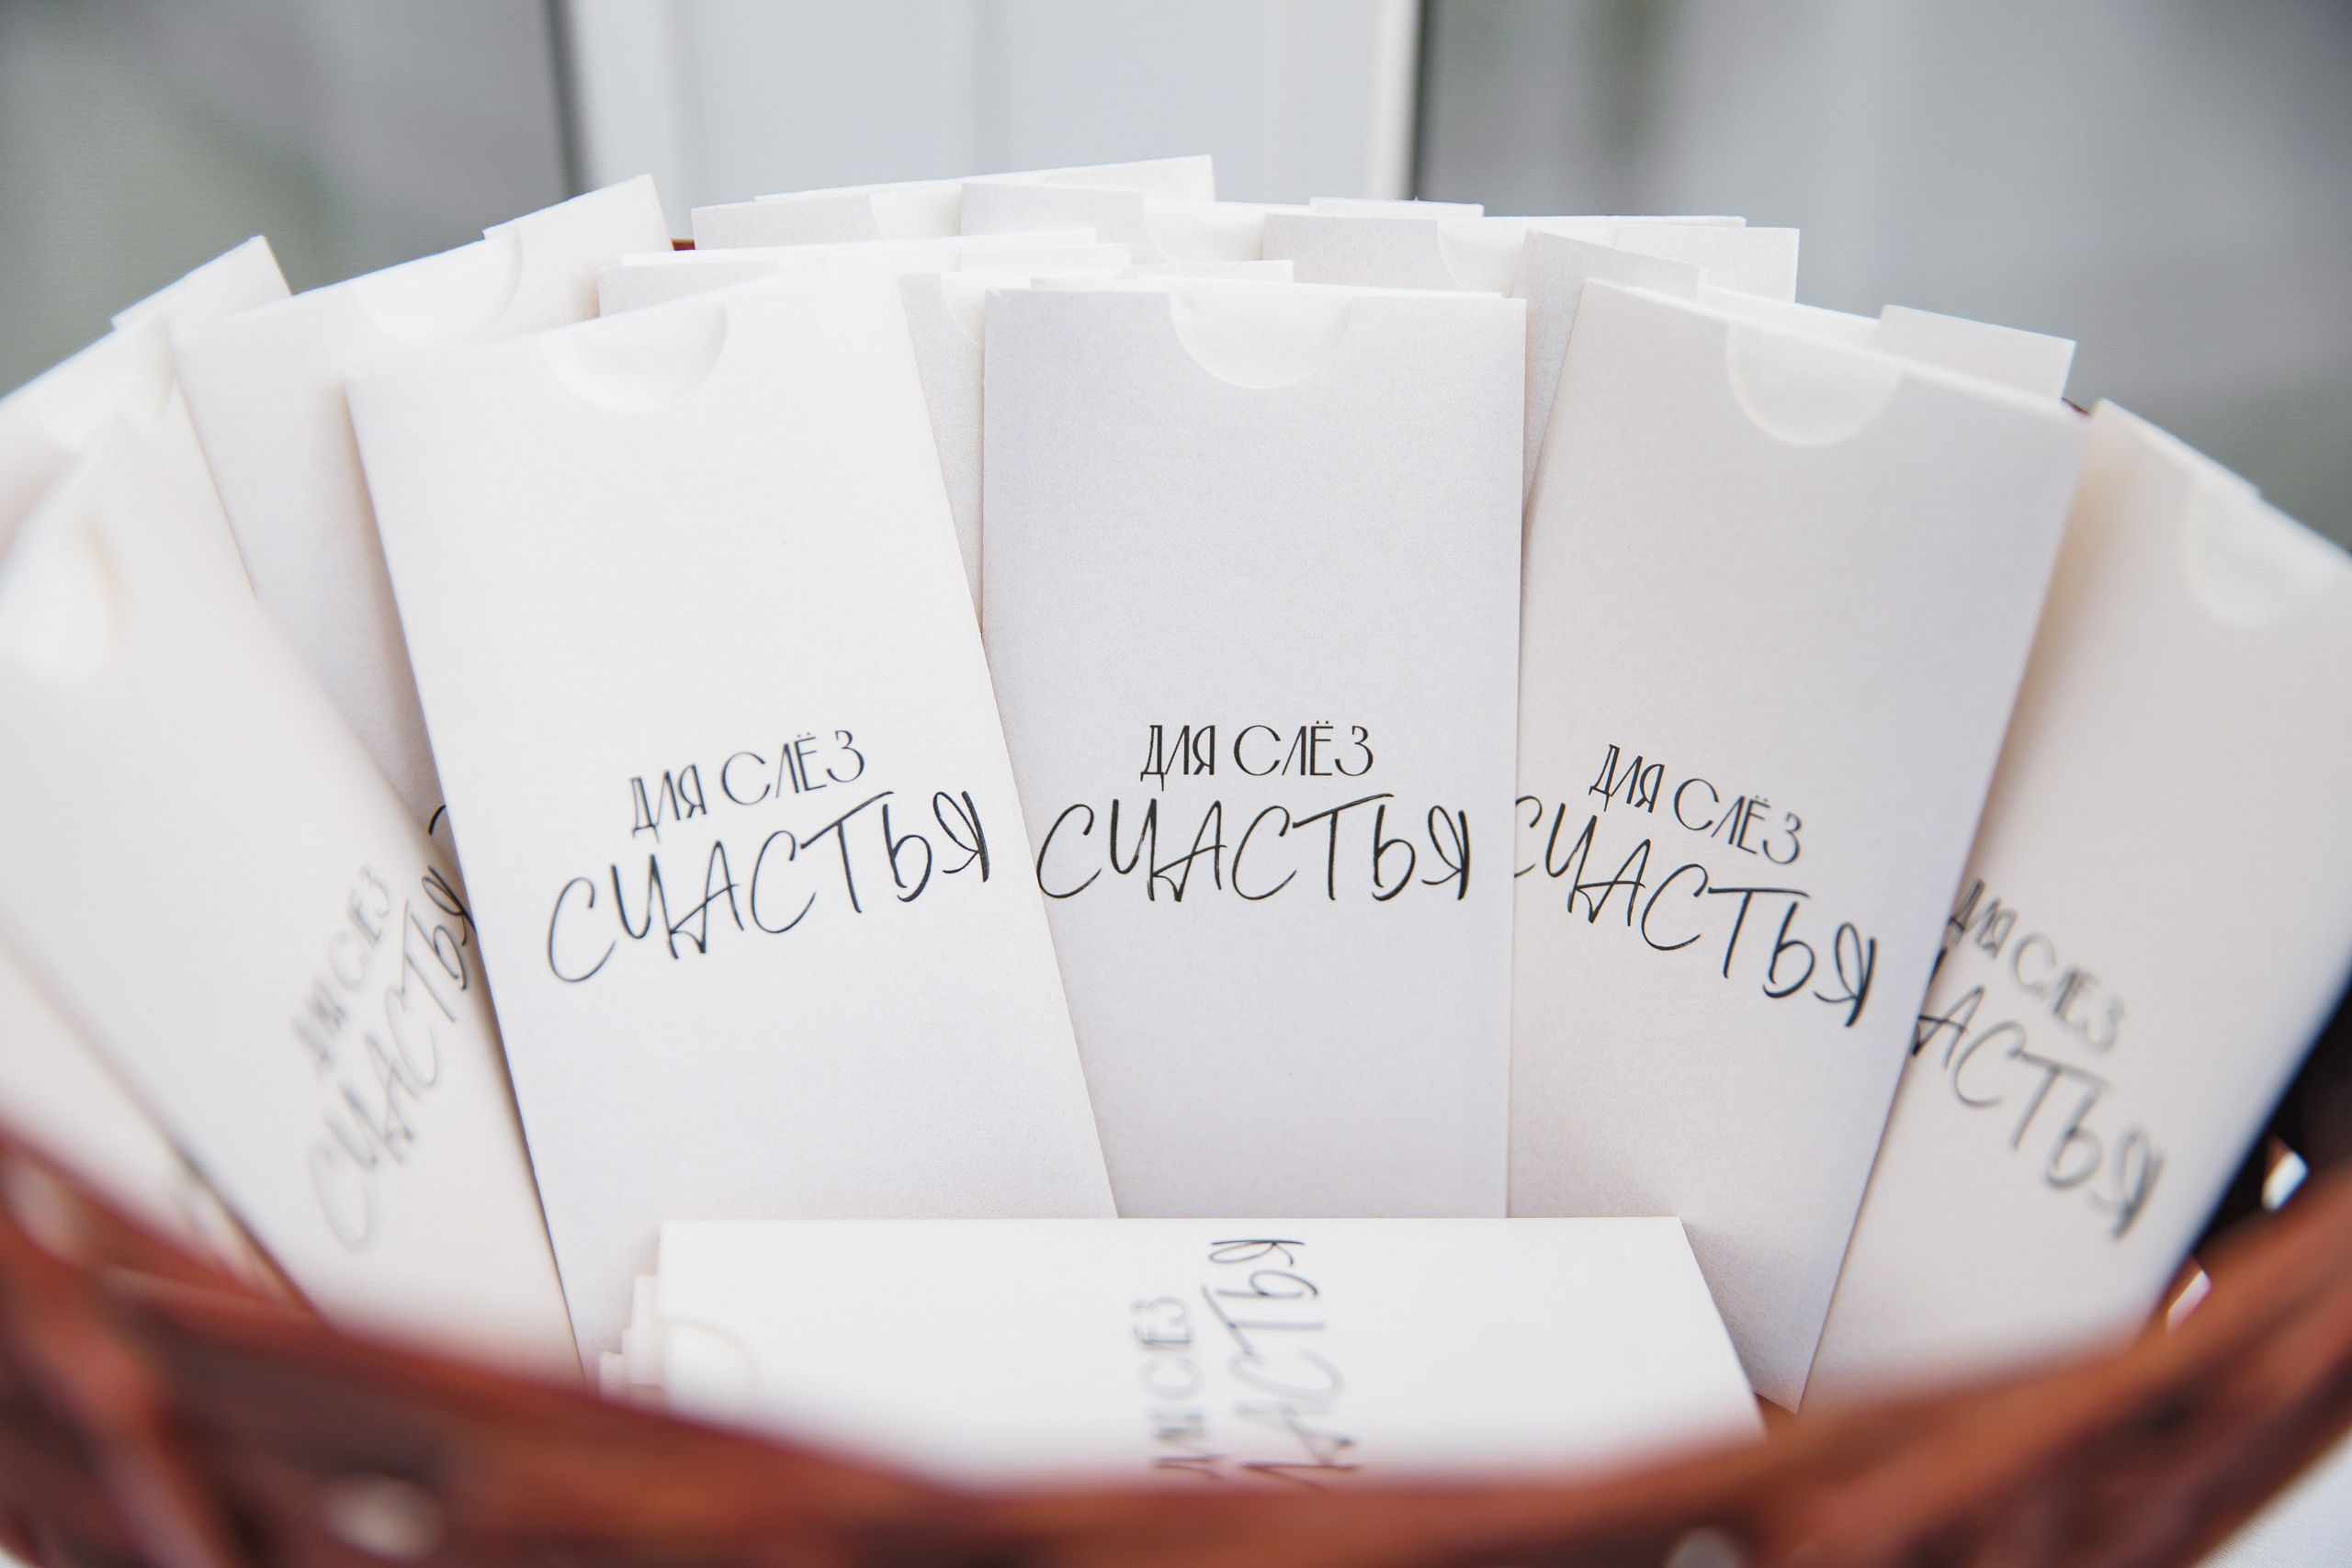 ДЛЯ СЛЁЗ
СЧАСТЬЯ
ДЛЯ СЛЁЗ
СЧАСТЬЯ
ДЛЯ СЛЁЗ
СЧАСТЬЯ
ДЛЯ СЛЁЗ
СЧАСТЬЯ
ДЛЯ СЛЁЗ
АСТЬЯ
ДЛЯ СЛЁЗ
ЧАСТЬЯ